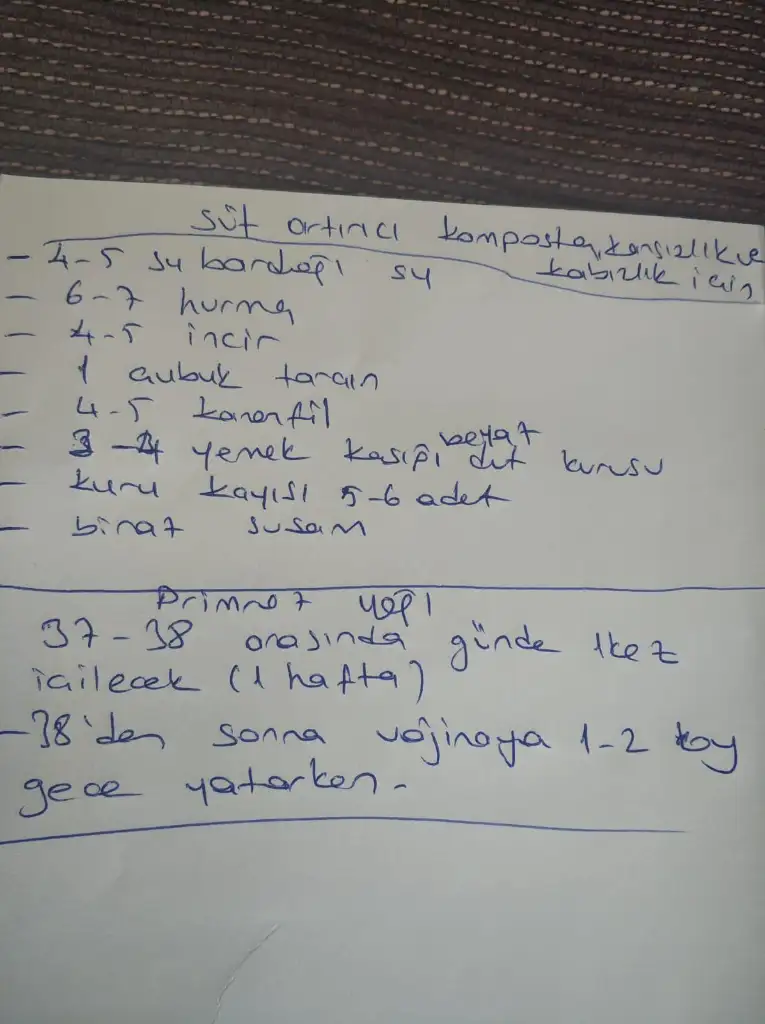 süt artırıcı komposto, kansızlık ve
kabızlık için
- 4-5 su bardağı su
- 6-7 hurma
- 4-5 incir
- 1 çubuk tarçın
- 4-5 karanfil
- 3-4 yemek kaşığı beyaz dut kurusu
- kuru kayısı 5-6 adet
- biraz susam
Primroz yağı
37-38 arasında günde 1 kez
içilecek (1 hafta)
- 38'den sonra vajinaya 1-2 koy
gece yatarken.